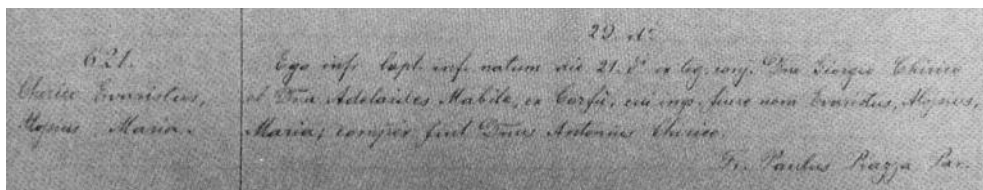 621.
Chirico Evaristus,
Aloysius Maria.
29. d.º
Ego inf. bapt. inf. natum die 21. d.º ex leg. conj. Dno Giorgio Chirico
et Dna Adelaides Mabile, ex Corfù, cui imp. fuere nom Evaristus, Aloysius,
Maria; comper fuit Dnus Antonius Chirico.
Fr. Paulus Piazza Par.